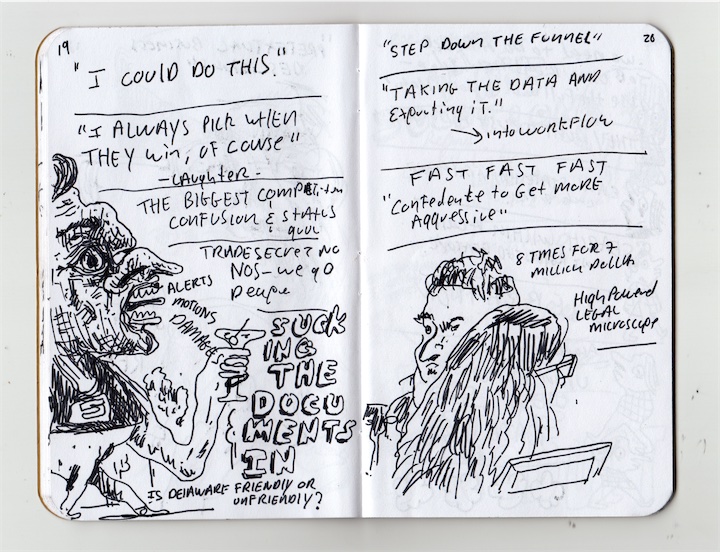 19
"I COULD DO THIS."
"I ALWAYS PICK WHEN
THEY WIN, OF COUSE"
- LAUGHTER -
THE BIGGEST COMPETITION
CONFUSION & STATUS
QUO
TRADE SECRET NO
NOS - WE GO
DEAPER
ALERTS
MOTIONS
DAMAGES
SUCK
ING
THE
DOCU
MENTS
IN
IS DELAWARE FRIENDLY OR
UNFRIENDLY?
20
"STEP DOWN THE FUNNEL"
"TAKING THE DATA AND
EXPORTING IT."
→ INTO WORKFLOW
FAST FAST FAST
"CONFEDENTE TO GET MORE
AGGRESSIVE"
8 TIMES FOR 7
MILLION DOLLARS
HIGH POWERED
LEGAL
MICROSCOPE